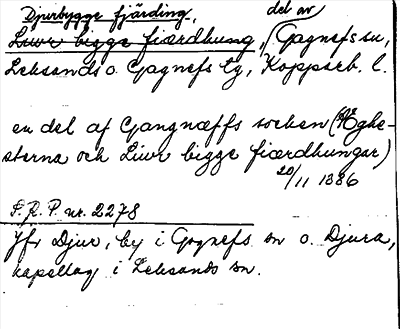 Djurbygge fjärding, del av
Liwr bigge fiærdhung, Gagnefs sn,
Leksands o. Gagnefs tg, Kopparb. l.
en del af Gangnæffs socken (
sterna och Liwr bigge fiærdhungar)
20/11 1386
S. R. P. nr. 2278
Jfr Djur, by i Gagnefs sn o. Djura,
kapellag i Leksands sn.